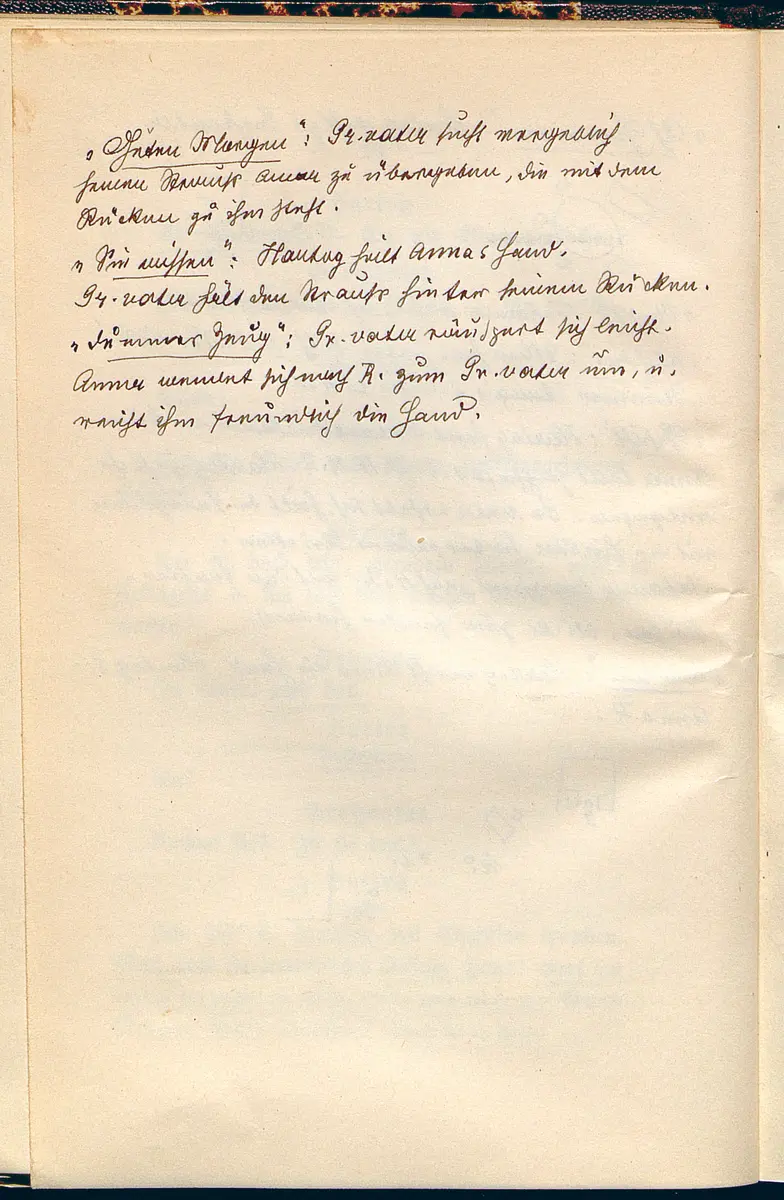 „Guten Morgen": Gr.vater sucht vergeblich
seinen Strauss Anna zu übergeben, die mit dem
Rücken zu ihm steht.
„Sie wissen": Hartog hält Annas Hand.
Gr.vater hält den Strauss hinter seinem Rücken.
„dummes Zeug": Gr.vater räuspert sich leicht.
Anna wendet sich nach R. zum Gr.vater um, u.
reicht ihm freundlich die Hand.